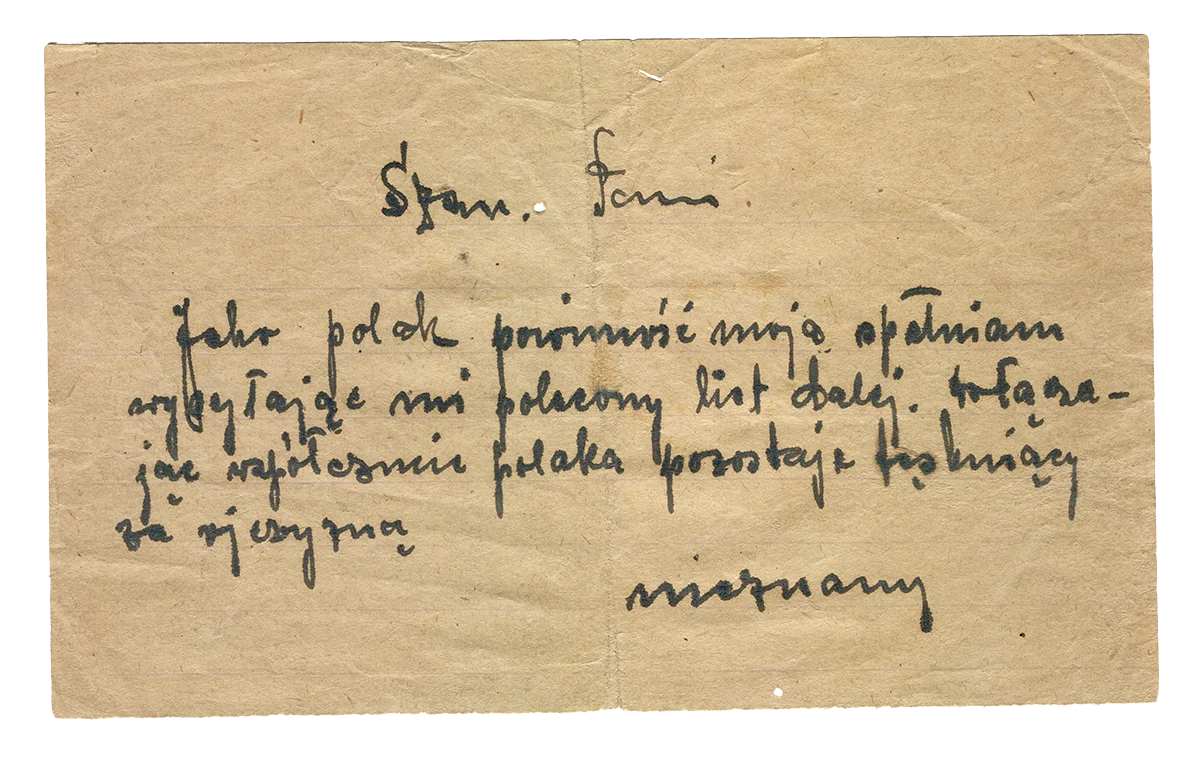 Szan. Pani
Jako polak powinność moją spełniam
wysyłając mi polecony list dalej. Dołącza-
jąc współczucie polaka pozostaje tęskniący
za ojczyzną
nieznany